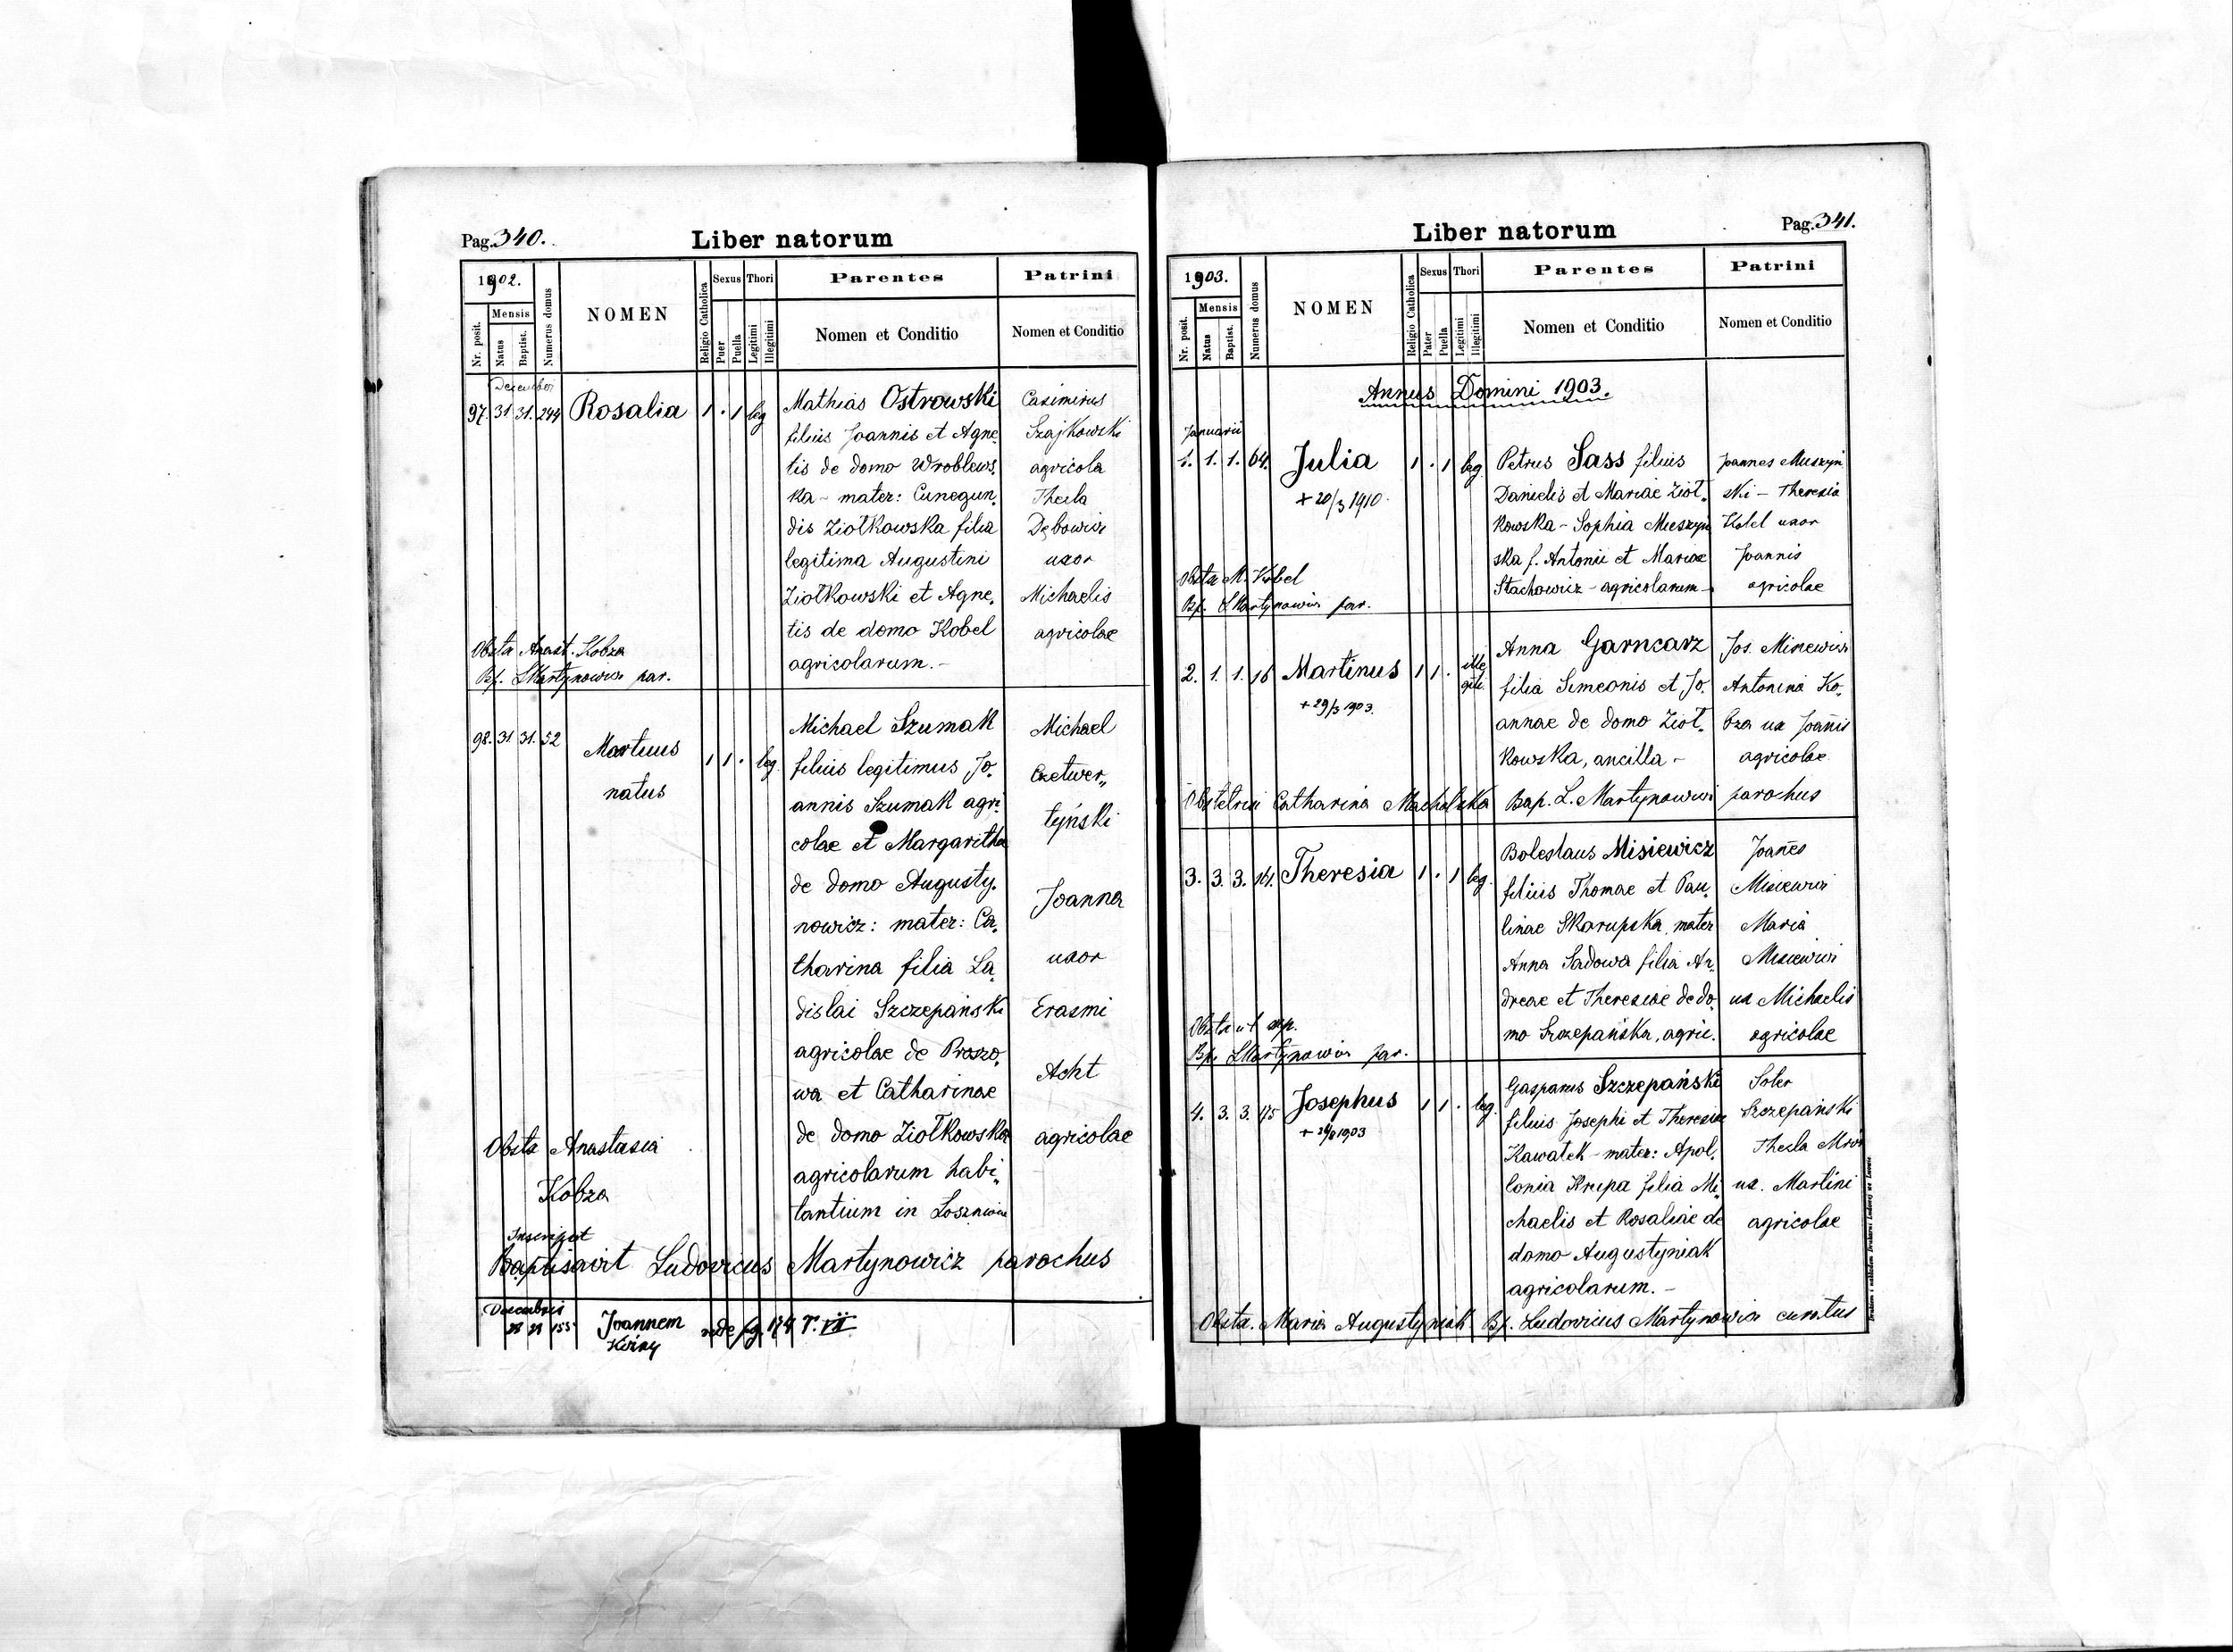 Pag. 340.
Liber natorum
1902.
Nr. posit.
Mensis
Natus
Baptist.
Numerus domus
NOMEN
Religio Catholica
Sexus
Puer
Puella
Thori
Legitimi
Illegitimi
Parentes
Nomen et Conditio
Patrini
Nomen et Conditio
December
97. 31 31. 244 Rosalia 1 . 1 leg
Mathias Ostrowski
filius Joannis et Agne,
tis de domo Wroblews,
ka - mater: Cunegun,
dis Ziołkowska filia
legitima Augustini
Ziołkowski et Agne,
tis de domo Kobel
agricolarum.-
Casimirus
Szajkowski
agricola
Thecla
Dębowicz
uxor
Michaelis
agricolae
Obstx Anast. Kobza
Bp. LMartynowicz par.
98. 31 31. 52 Martinus 1 1 . leg.
natus
Michael Szumak
filius legitimus Jo,
annis Szumak agri
colae et Margaritha
de domo Augusty,
nowicz: mater: Ca,
tharina filia La
dislai Szczepański
agricolae de Proszo,
wa et Catharinae
de domo Ziołkowska
agricolarum habi,,
tantium in Łoszniow
Michael
Czetwer,,
tyński
Joanna
uxor
Erasmi
Acht
agricolae
Obstx Anastasia
Kobza
Inscripsit
Baptisavit Ludovicus Martynowicz parochus
Decembris
28 29 155 Joannem vide pg. 174 T. VII
Koźny
Pag. 341.
Liber natorum
1903.
Nr. posit.
Mensis
Natus
Baptist.
Numerus domus
NOMEN
Religio Catholica
Sexus
Pater
Puella
Thori
Legitimi
Illegitimi
Parentes
Nomen et Conditio
Patrini
Nomen et Conditio
Annus Domini 1903.
Januarii
1. 1. 1. 64. Julia 1 . 1 leg.
+ 20/3 1910.
Petrus Sass filius
Danielis et Mariae Zioł,
kowska - Sophia Muszyń
ska f. Antonii et Mariae
Stachowicz - agricolarum -
Joannes Muszyń
ski - Theresia
Kobel uxor
Joannis
agricolae
Obstx M. Kobel
Bp. LMartynowicz par.
2. 1. 1. 16 Martinus 1 1 . ille
giti.
+ 29/3 1903.
Anna Garncarz
filia Simeonis et Jo,
annae de domo Zioł,
kowska, ancilla -
Jos. Misiewicz
Antonina Ko,
bza ux Joañis
agricolae
Obstetrix Catharina Machalska Bap. L. Martynowicz parochus
3. 3. 3. 141. Theresia 1 . 1 leg.
Boleslaus Misiewicz
filius Thomae et Pau,
linae Skarupska, mater
Anna Sadowa filia An,
dreae et Theresiae de do,
mo Szczepańska, agric.
Joañes
Misiewicz
Maria
Misiewicz
ux Michaelis
agricolae
Obstx ut sup.
Bp. LMartynowicz par.
4. 3. 3. 45 Josephus 1 1 . leg.
Gasparus Szczepański
filius Josephi et Theresiae
Kawałek - mater: Apol,
lonia Krupa filia Mi,
chaelis et Rosaliae de
domo Augustyniak
agricolarum.-
Soter
Szczepański
Thecla
ux. Martini
agricolae
Obstx. Maria Augustyniak Bp. Ludovicus Martynowicz curatus